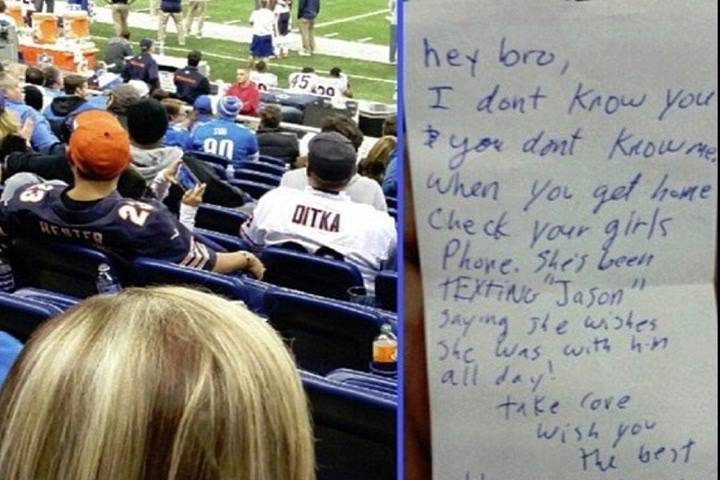 45
29
80
23
23
HESTER
DITKA
hey bro,
I dont know you
& you dont know me
when you get home
check your girls
Phone. She's been
TEXTING "Jason"
saying she wishes
she was with him
all day!
take care
wish you
the best